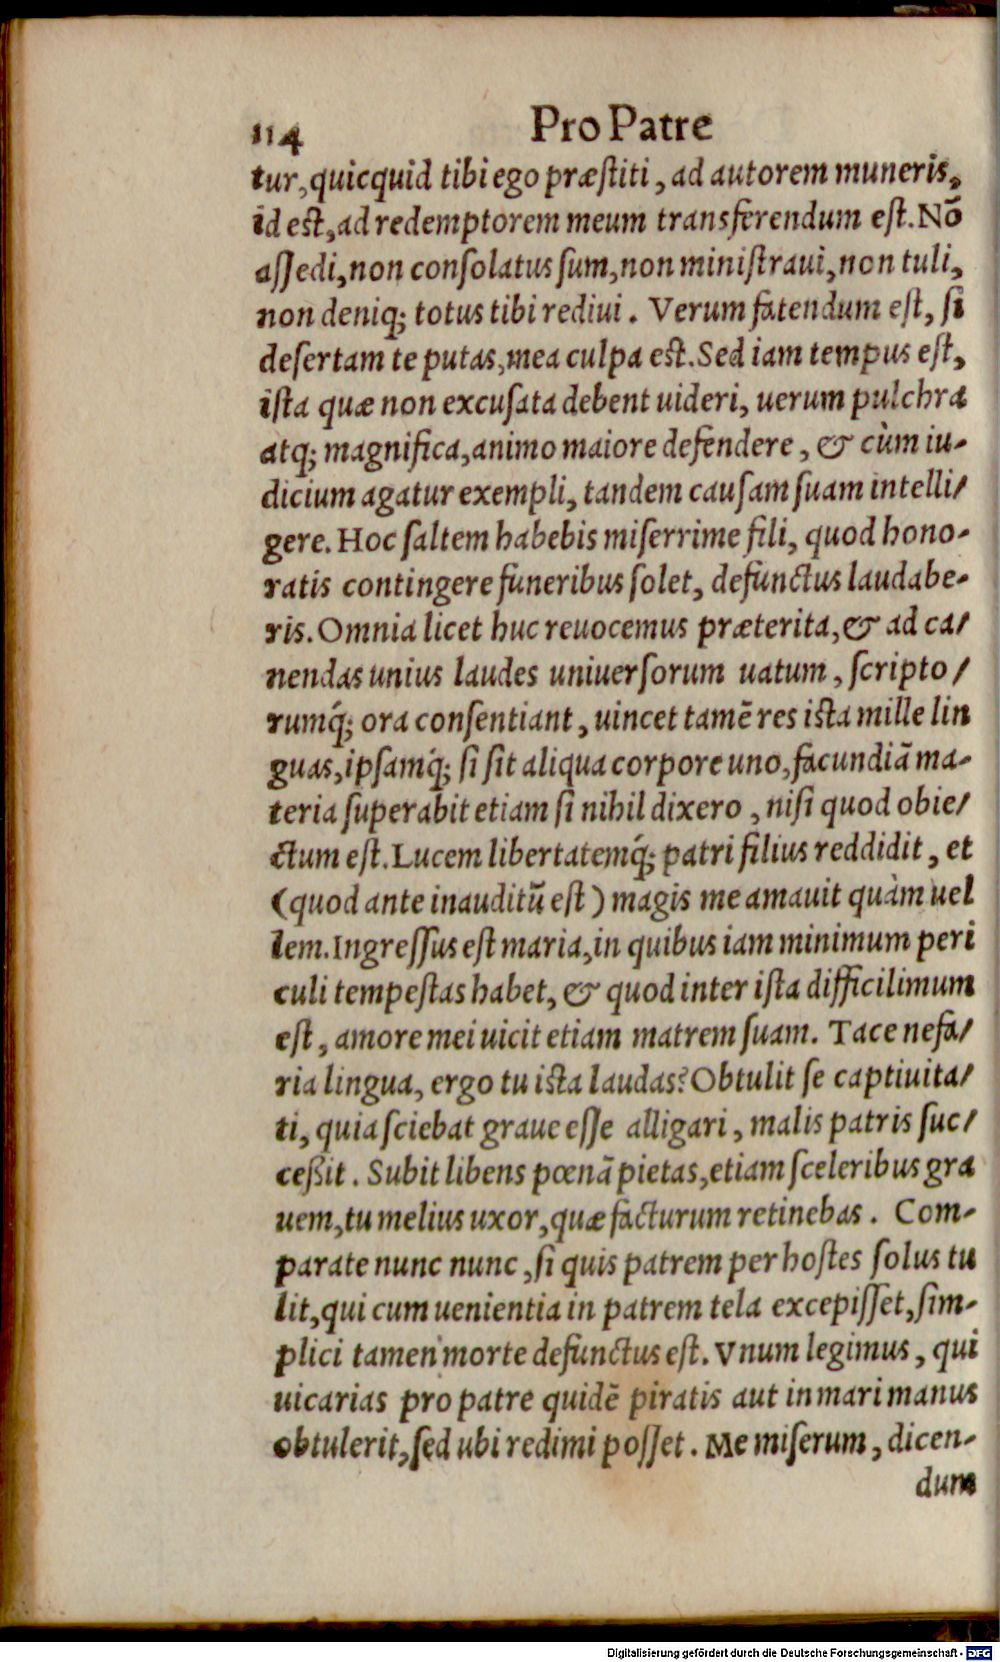 114 Pro Patre
tur, quicquid tibi ego præſtiti, ad autorem muneris,
id eſt, ad redemptorem meum transferendum eſt. Nõ
aſſedi, non conſolatus ſum, non miniſtraui, non tuli,
non deniq; totus tibi rediui. Verum fatendum eſt, ſi
deſertam te putas, mea culpa eſt. Sed iam tempus eſt,
iſta quæ non excuſata debent uideri, uerum pulchra
atq; magnifica, animo maiore defendere, & cùm iu-
dicium agatur exempli, tandem cauſam ſuam intelli/
gere. Hoc ſaltem habebis miſerrime fili, quod hono-
ratis contingere funeribus ſolet, defunctus laudabe-
ris. Omnia licet huc reuocemus præterita, & ad ca/
nendas unius laudes uniuerſorum uatum, ſcripto/
rumq́; ora conſentiant, uincet tamẽ res iſta mille lin
guas, ipſamq́; ſi ſit aliqua corpore uno, facundiã ma-
teria ſuperabit etiam ſi nihil dixero, niſi quod obie/
ctum eſt. Lucem libertatemq́; patri filius reddidit, et
(quod ante inauditũ eſt) magis me amauit quàm uel
lem. Ingreſſus eſt maria, in quibus iam minimum peri
culi tempeſtas habet, & quod inter iſta difficilimum
eſt, amore mei uicit etiam matrem ſuam. Tace nefa/
ria lingua, ergo tu iſta laudas? Obtulit ſe captiuita/
ti, quia ſciebat graue eſſe alligari, malis patris ſuc/
ceßit. Subit libens pœnã pietas, etiam ſceleribus gra
uem, tu melius uxor, quæ facturum retinebas. Com-
parate nunc nunc, ſi quis patrem per hoſtes ſolus tu
lit, qui cum uenientia in patrem tela excepiſſet, ſim-
plici tamen morte defunctus eſt. Vnum legimus, qui
uicarias pro patre quidẽ piratis aut in mari manus
obtulerit, ſed ubi redimi poſſet. Me miſerum, dicen-
dum
Digitalisierung gefördert durch die Deutsche Forschungsgemeinschaft - DFG